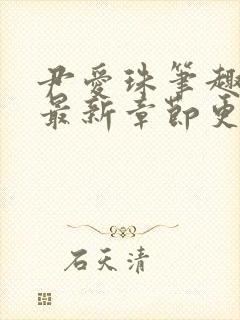 尹爱珠笔趣
最新章节更
石天清